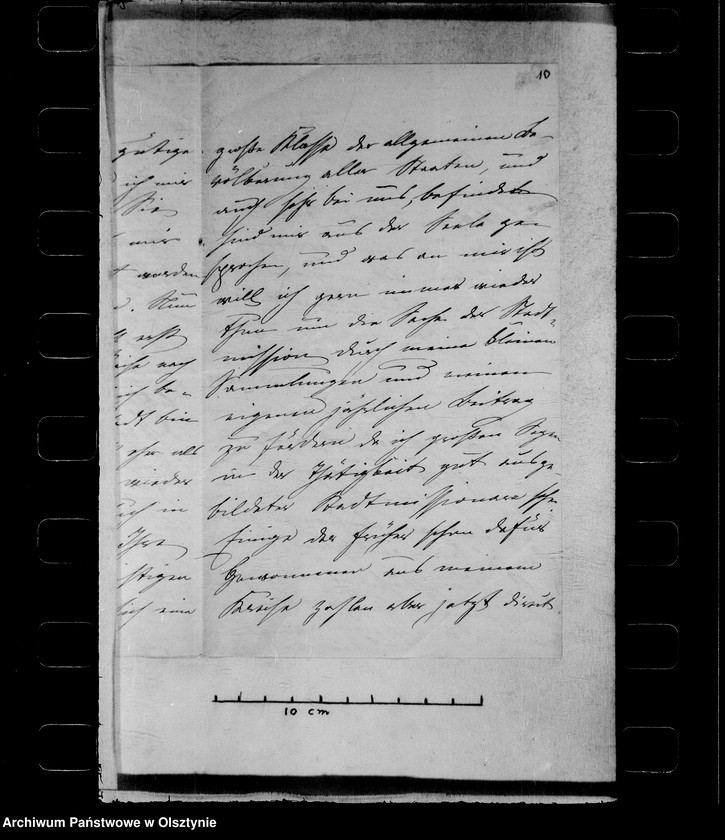 10
große Klasse der allgemeinen Be-
völkerung aller Staaten, und
auch sehr bei uns, befindet
sind mir aus der Seele ge-
sprochen, und was an mir ist
will ich gern immer wieder
thun um die Sache der Stadt-
mission durch meine kleinen
Sammlungen und meinen
eigenen jährlichen Beitrag
zu fördern da ich großen Segen
in der Thätigkeit gut ausge-
bildeter Stadtmissionare sehe
Einige der früher schon dafür
Gewonnenen aus meinem
Kreise zahlen aber jetzt direkt
gütige
ich mir
Sie
mir
worden
Nun
erst
noch
ich be-
bin
als
wieder
in
Ihre
eine
10 cm
Archiwum Państwowe w Olsztynie